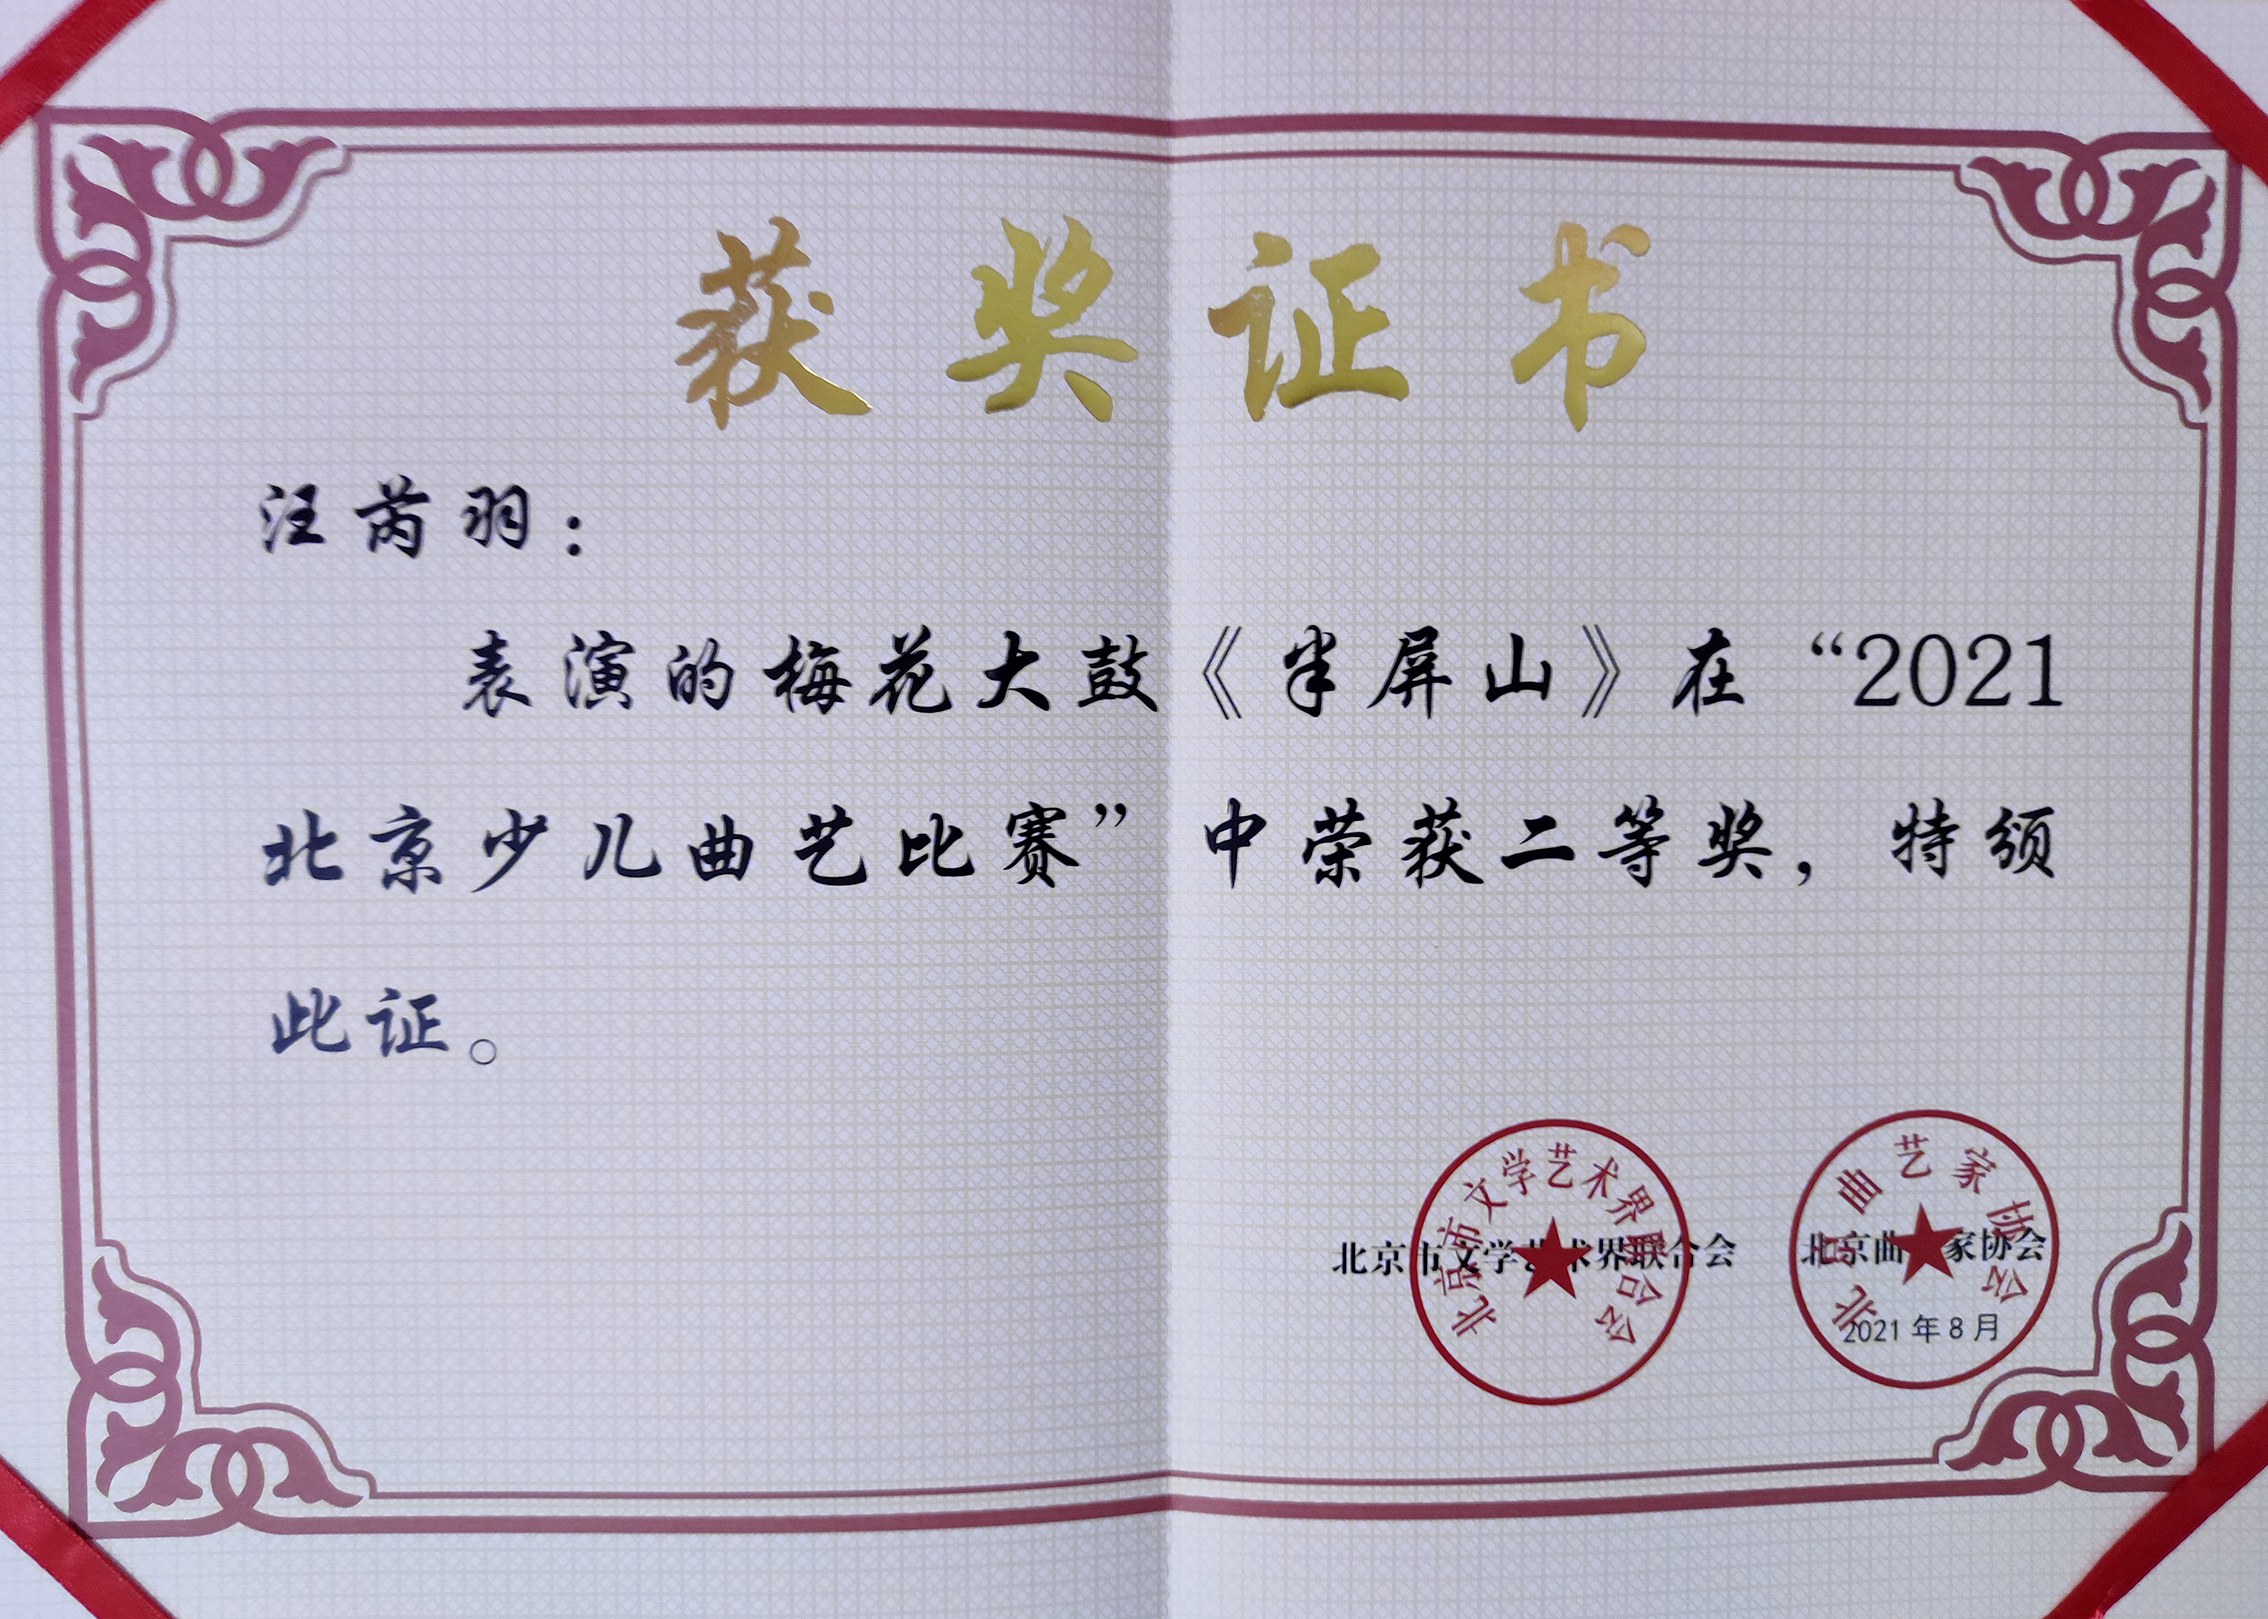 获奖证书
汪芮羽：
表演的梅花大鼓《半屏山》在“2021
北京少儿曲艺比赛”中荣获二等奖，特颁
此证。
北京市文学艺术界联合会 北京曲艺家协会
2021年8月
北京市文学艺术界联合会
北京曲艺家协会